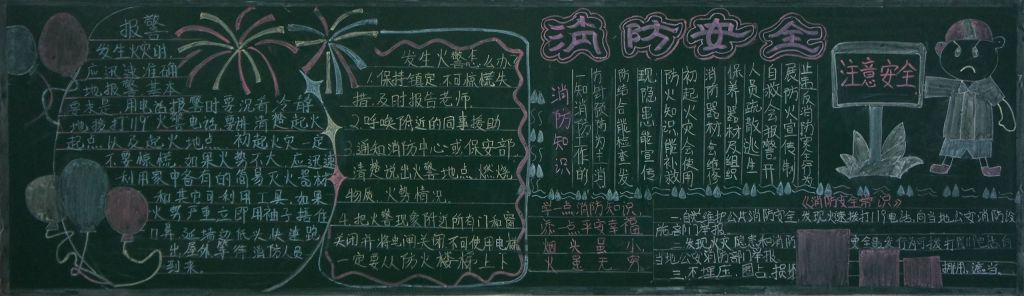 报警
发生火灾时
应迅速准确
地报警基本
要求是:用电话报警时要沉着冷静
地拨打119火警电话,要讲清楚起火
起点,以及起火地点.初起火灾一定
不要惊慌.如果火势不大,应迅速
利用家中备有的简易灭火器材
和其它可利用工具.如果
火势严重立即用袖子捂住
口鼻近墙边低火快速跑
出屋保等件消防人员
到来.
发生火警怎么办
1.保持镇定不可惊慌失
措.及时报告老师.
2.呼唤附近的同事援助
3.通知消防中心或保安部.
清楚说出火警地点燃烧
物质.火势情况.
4.把火警现象附近所有门和窗
关闭.并将电闸关闭不可使用电梯
一定要从防火楼梯上下
消防安全
消防知识
一知消防工作的
方针报防为主消
防结合能检查发
现隐患能宣传
防火知识能扑救
初起火灾会使用
消防器材会维修
保养器材及组织
人员疏散逃生
自救会报警.开
展防火宣传.制
注意安全
学点消防知识
添一点平安幸福
烟头虽小
火星无穷
《消防安全常识》
一.自觉维护公共消防安全.发现火灾拨打119电池,向当地公安消防设
二.发现火灾隐患和消防
当地公安消防部门举报
三.不埋压、圈占、损坏
挪用、遮当.